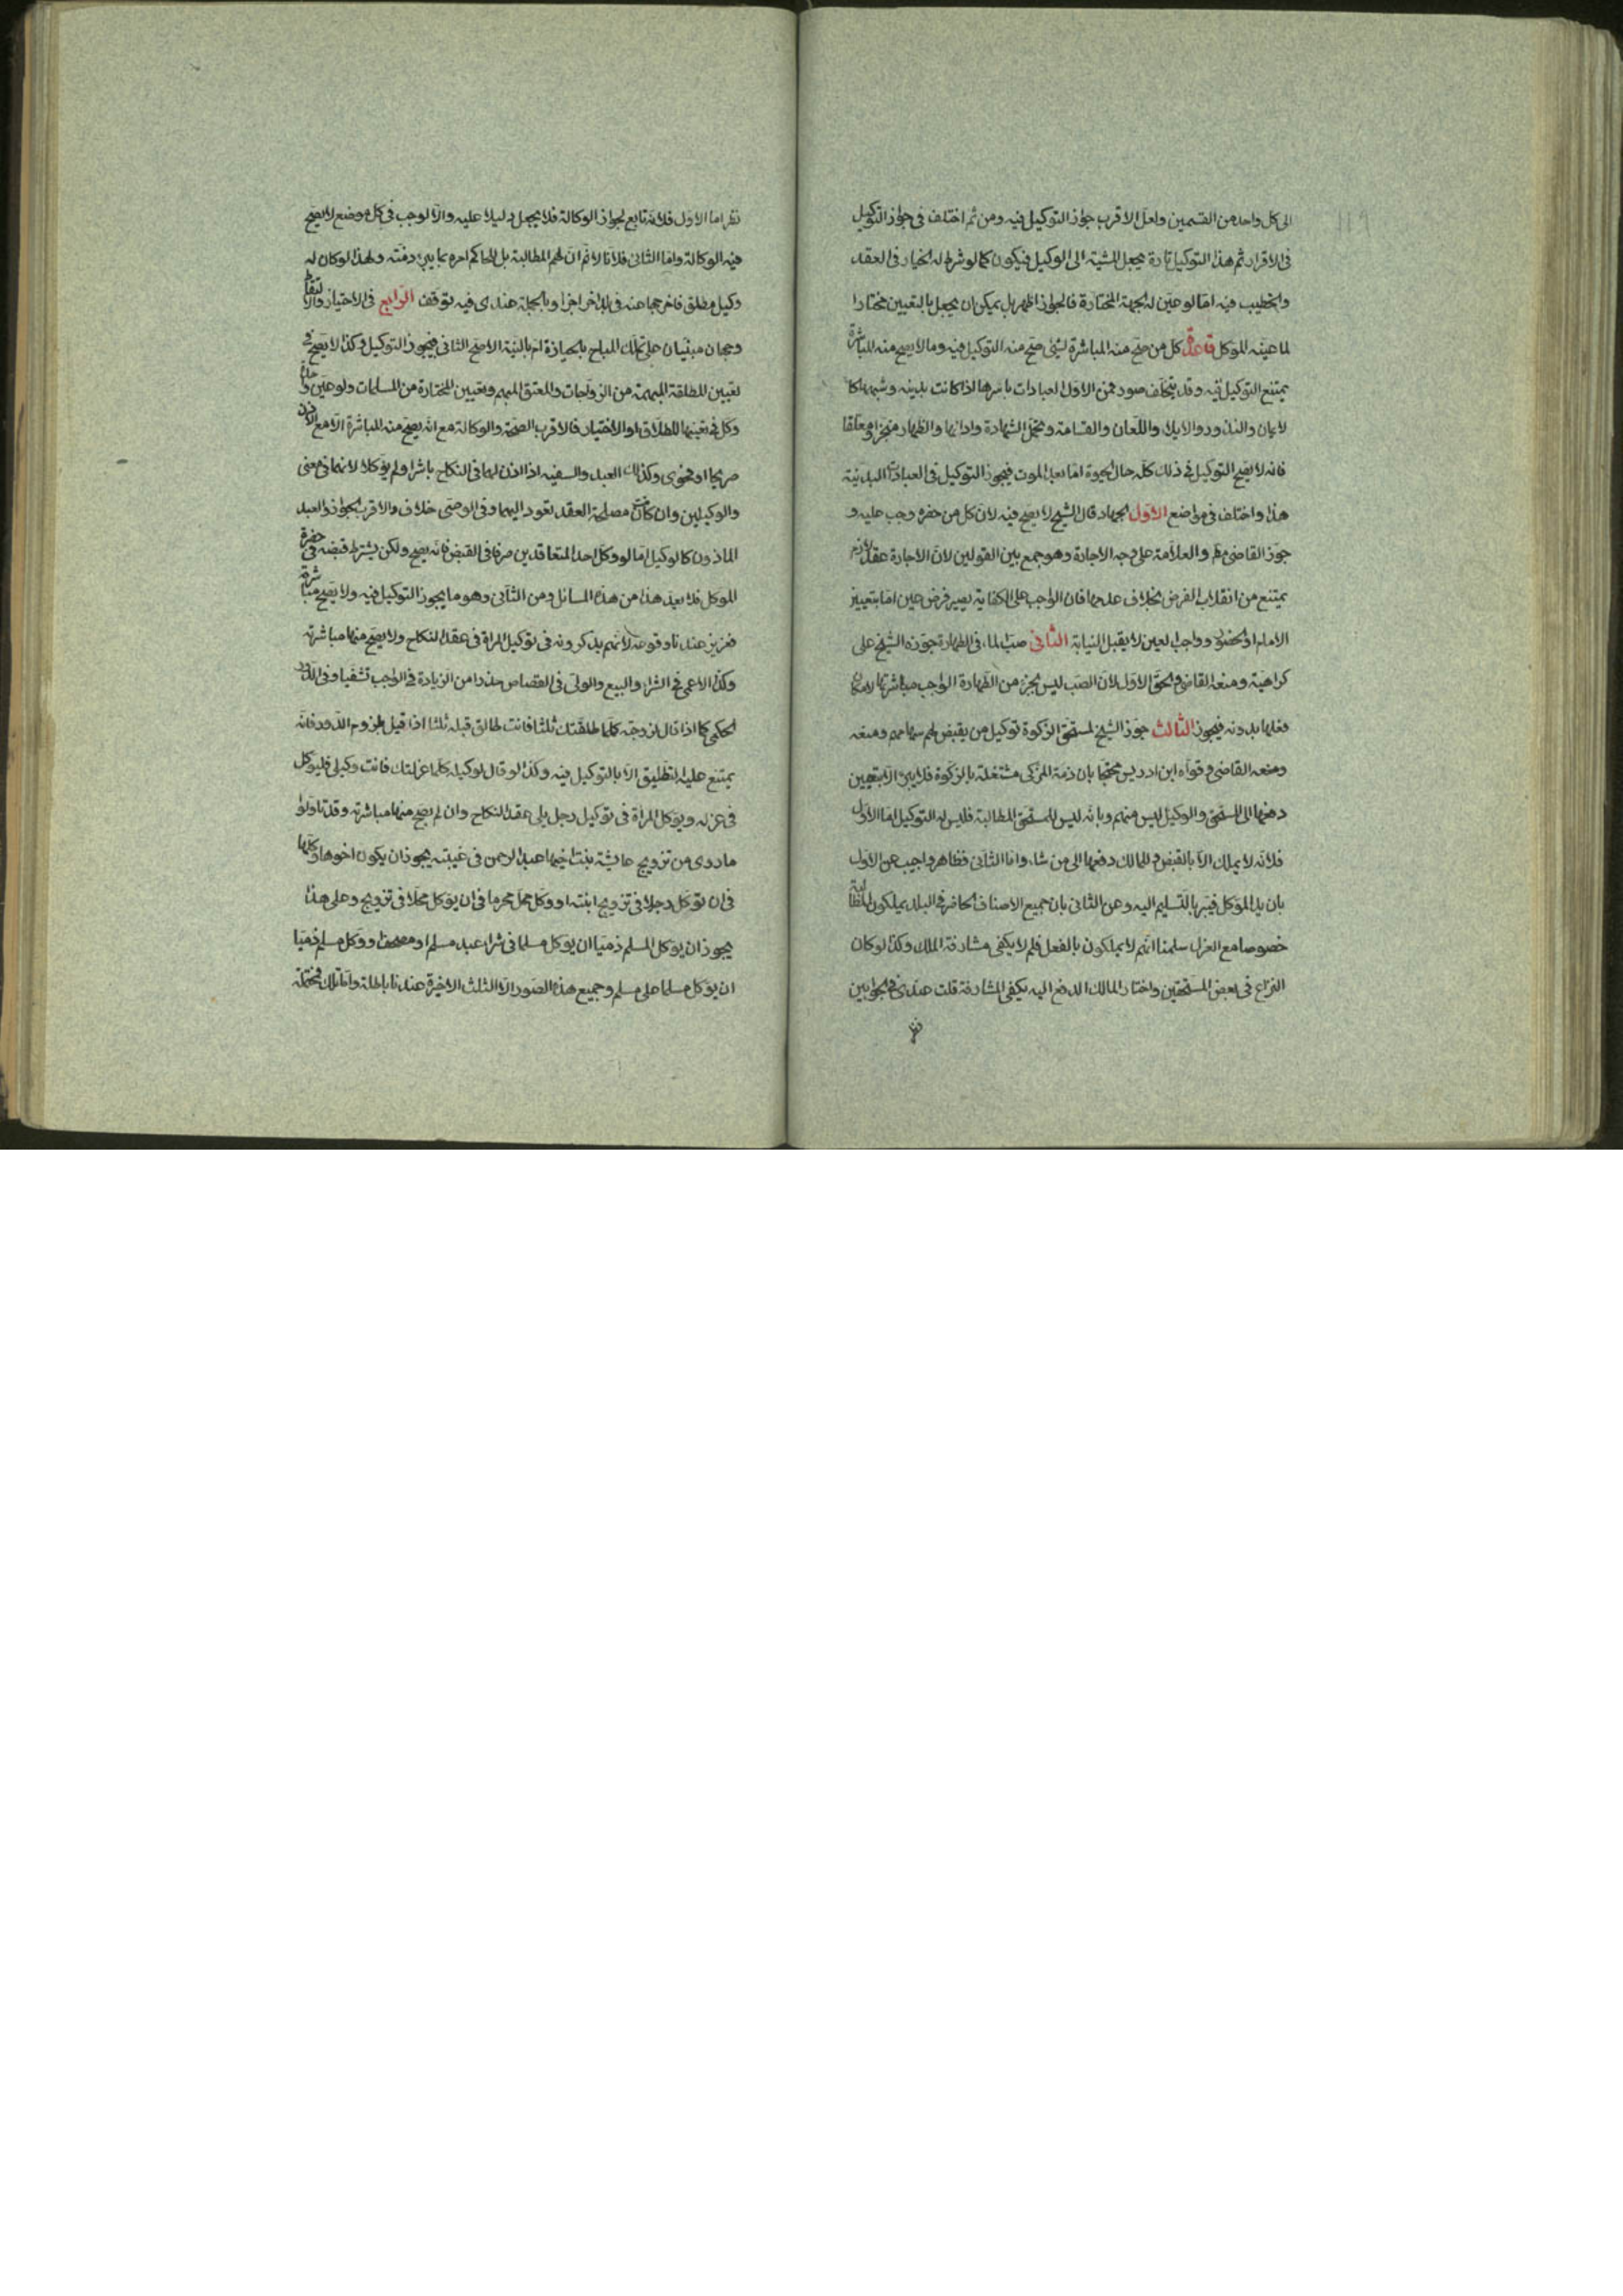 ١١٩
الى كل واحد من القسمين ولعل الاقرب جواز التوكيل فيه ومن ثم اختلف فى جواز التوكيل
فى الاقرار ثم هذا التوكيل تارة يجعل المشية الى الوكيل فيكون كما لو شرط له الخيار فى العقد
والخطيب فيه اما لو عين له الجهة المختارة فالجواز اظهر بل يمكن ان يجعل بالتعيين مختارا
لما عينه الموكل قاعدة كل من صح منه المباشرة لشئ صح منه التوكيل فيه وما لا يصح منه المباشرة
يمتنع التوكيل فيه وقد يتخلف صور فمن الاول العبادات باسرها اذا كانت بدنية وشبهها كا
لايمان والنذور والايلاء واللعان والقسامة وتحمل الشهادة وادائها والظهار منجزا ومعلقا
فانه لا يصح التوكيل فى ذلك كله حال الحيوة اما بعد الموت فيجوز التوكيل فى العبادات البدنية
هذا واختلف فى مواضع الاول الجهاد قال الشيخ لا يصح فيه لان كل من حضره وجب عليه و
جوز القاضى والعلامة على وجه الاجارة وهو جمع بين القولين لان الاجارة عقد لازم
يمتنع من انقلاب الفرض بخلاف عدمها فان الواجب على الكفاية يصير فرض عين اما بتعيين
الامام او الحضور وواجب العين لا يقبل النيابة الثانى صب الماء فى الطهارة جوزه الشيخ على
كراهية ومنعه القاضى والحق الاول لان الصب ليس بجزء من الطهارة الواجب مباشرتها لامكان
فعلها بدونه فيجوز الثالث جوز الشيخ لمستحق الزكوة توكيل من يقبض لهم سهامهم ومنعه
ومنعه القاضى وقواه ابن ادريس محتجا بان ذمة المزكى مشتغلة بالزكوة فلا يبرئ الا بتعيين
دفعها الى المستحق والوكيل ليس منهم وبانه ليس للمستحق المطالبة فليس له التوكيل اما الاول
فلانه لا يملك الا بالقبض وللمالك دفعها الى من شاء واما الثانى فظاهر واجيب عن الاول
بان يد الموكل فيبرء بالتسليم اليه وعن الثانى بان جميع الاصناف الحاضر فى البلد يملكون المطالبة
خصوصا مع العزل سلمنا انهم لا يملكون بالفعل فلم لا يكفى مشارفة الملك وكذا لو كان
النزاع فى بعض المستحقين واختار المالك الدفع اليه يكفى المشارفة قلت عندى فى الجوابين
نظر
نظر اما الاول فلانه تابع لجواز الوكالة فلا يجعل دليلا عليه والا لوجب فى كل موضع لا يصح
فيه الوكالة واما الثانى فلانا لا نم ان لهم المطالبة بل للحاكم امره بما يبرئ ذمته ولهذا لو كان له
وكيل مطلق فاخرجها عنه فى بلد اخر اجزا وبالجملة عندى فيه توقف الرابع فى الاحتياز والالتقاط
وجهان مبنيان على تملك المباح بالحيازة ام بالنية الاصح الثانى فيجوز التوكيل وكذا لا يصح فى
تعيين المطلقة المبهمة من الزوجات والمعتق المبهم وتعيين المختارة من المسلمات ولو عين واحدة
وكل فى تعينها للطلاق او الاختيار فالاقرب الصحة والوكالة مع انه يصح منه المباشرة الا مع الاذن
صريحا او فحوى وكذلك العبد والسفيه اذا اذن لهما فى النكاح باشرا ولم يوكلا لانهما فى معنى
والوكيلين وان كانت مصلحة العقد تعود اليهما وفى الوصى خلاف والاقرب الجواز والعبد
الماذون كالوكيل اما لو وكل احد المتعاقدين صرفا فى القبض فانه يصح ولكن يشترط قبضه فى حضرة
الموكل فلا يعد هذا من هذه المسائل ومن الثانى وهو ما يجوز التوكيل فيه ولا يصح مباشرته
فعزيز عندنا وقوعه لانهم يذكرونه فى توكيل المراة فى عقد النكاح ولا يصح منها مباشرته
وكذا الاعمى فى الشراء والبيع والولى فى القصاص حذرا من الزيادة فى الواجب تشفيا وفى الدور
الحكمى كما اذا قال لزوجته كلما طلقتك ثلثا فانت طالق قبله ثلثا اذا قيل بلزوم الدور فانه
يمتنع عليه التطليق الا بالتوكيل فيه وكذا لو قال لوكيله كلما عزلتك فانت وكيلى فليوكل
فى عزله ويوكل المراة فى توكيل رجل يلى عقد النكاح وان لم يصح منها مباشرته وقد تاولوا
ما روى من تزويج عايشة بنت اخيها عبد الرحمن فى غيبته يجوز ان يكون اخوها وكلها
فى ان توكل رجلا فى تزويج ابنته او وكل محل محرما فى ان يوكل محلا فى تزويج وعلى هذا
يجوز ان يوكل المسلم ذميا ان يوكل مسلما فى شراء عبد مسلم او مصحف او وكل مسلم ذميا
ان يوكل مسلما على مسلم وجميع هذه الصور الا الثلث الاخيرة عندنا باطلة واما تلك فمحتملة